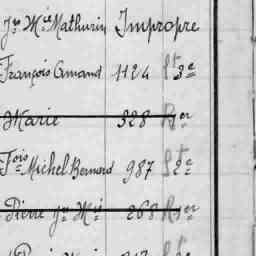 Jn Mie Mathurin Impropre
François Amand 1124 St 3e
Marie 328 Rer
Fois Michel Bernard 987 St 2e
Pierre Jn Mie 268 Rer